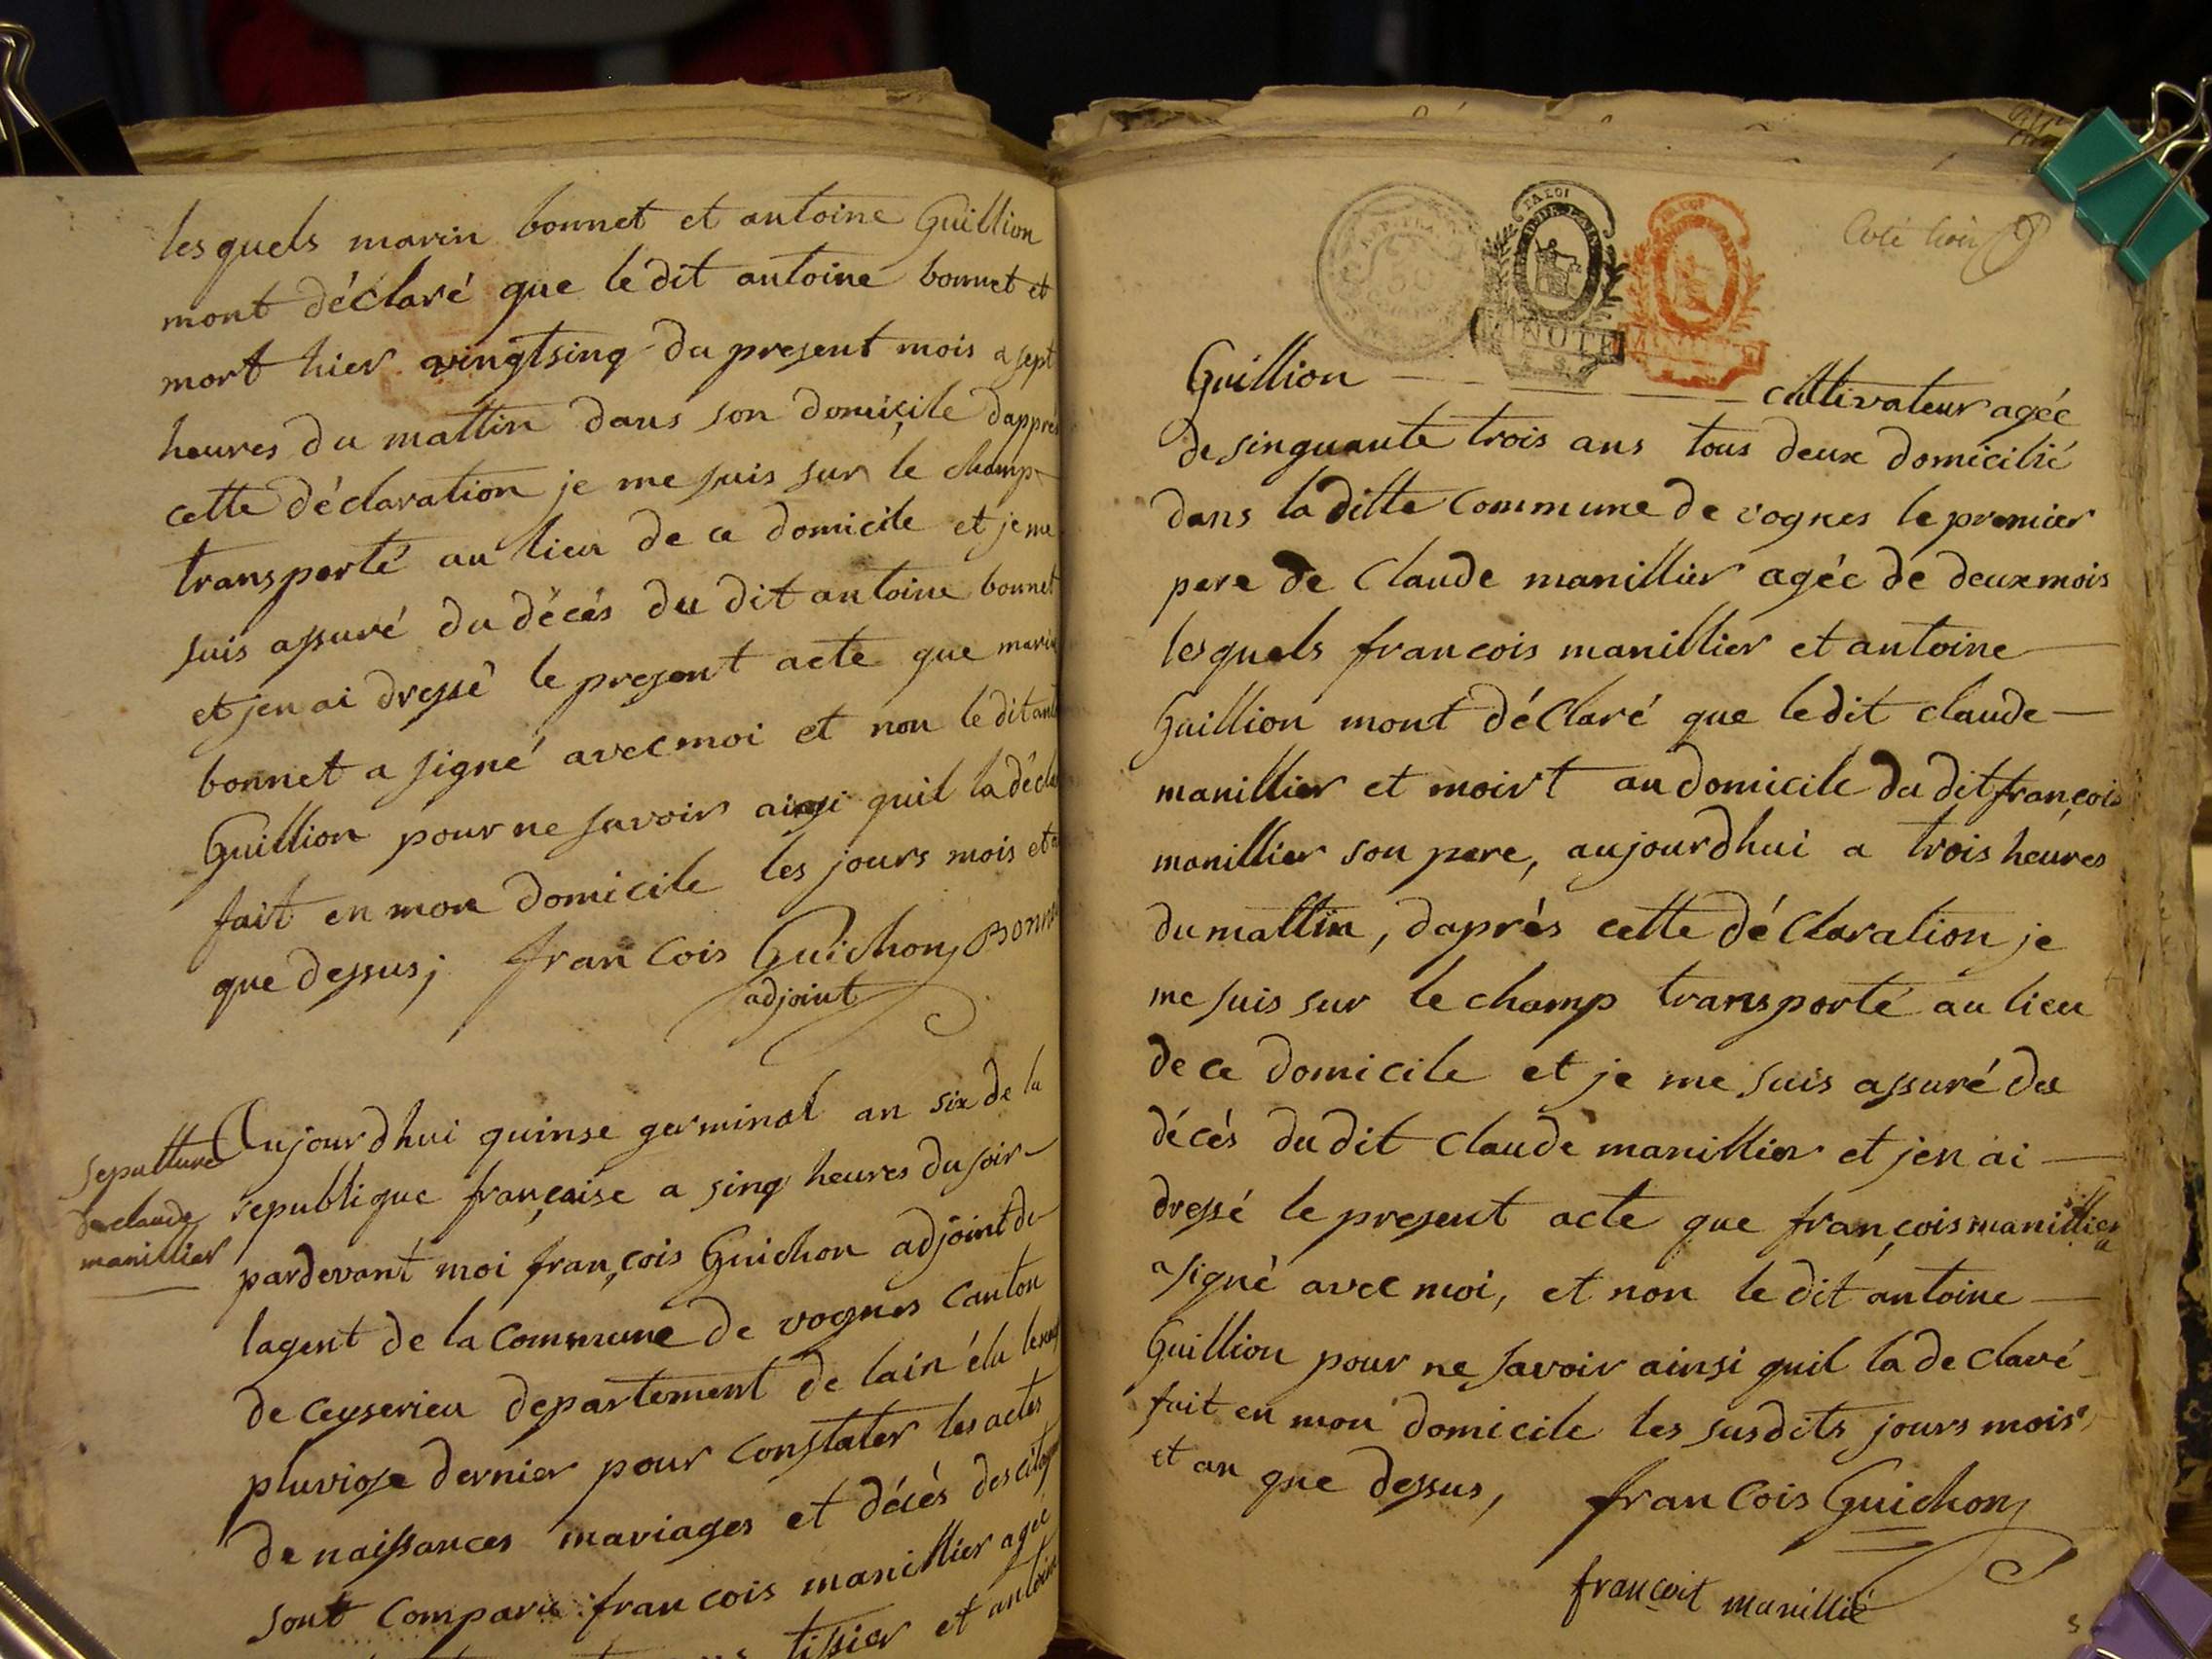 lesquels marin bonnet et antoine Guillion
mont déclaré que ledit antoine bonnet et
mort hier vingtsinq du present mois a sept
heures du mattin dans son domiçile dapprés
cette déclaration je me suis sur le champ
transporté au lieu de ce domicile et je me
suis assuré du décés du dit antoine bonnet
et jen ai dressé le present acte que marin
bonnet a signé avec moi et non le dit
Guillion pour ne savoir ainsi quil la
fait en mon domicile les jours mois et
que dessus; francois Guichon
adjoint
sepulture
de claude
manillier
Aujourdhui quinse germinal an six de la
republique française a sinq heures du soir
pardevant moi françois Guichon adjoint de
lagent de la commune de vognes canton
de ceyserieu departement de lain élu le
pluviose dernier pour constater les actes
de naissances mariages et décès des
sont comparu francois manillier agée
tissier et antoine
LA LOI
MINUTE
LA LOI
Guillion cultivateur agée
de singuante trois ans tous deux domicilié
dans la ditte commune de vognes le premier
pere de Claude manillier agée de deux mois
lesquels francois manillier et antoine
Guillion mont déclaré que ledit claude
manillier et moirt au domicile du dit françois
manillier son pere, aujourdhui a trois heures
du mattin, daprès cette déclaration je
me suis sur le champ transporté au lieu
de ce domicile et je me suis assuré du
décés du dit claude manillier et jen ai
dressé le present acte que françois manillier
a signé avec moi, et non le dit antoine
Guillion pour ne savoir ainsi quil la declaré
fait en mon domicile les susdits jours mois
et an que dessus, francois Guichon
françoit manillié